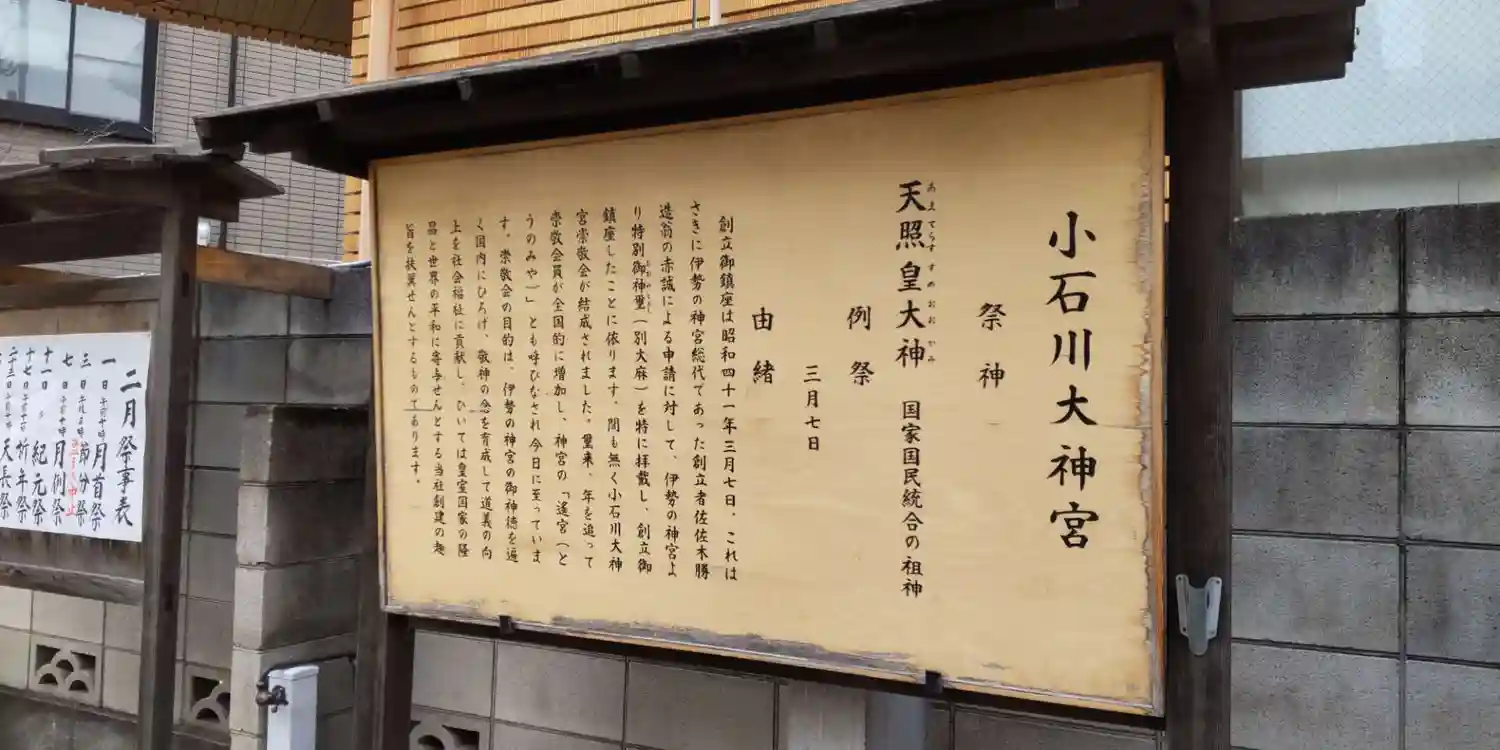 小石川大神宮
祭神
あまてらすすめおおかみ
天照皇大神 国家国民統合の祖神
例祭
三月七日
由緒
創立御鎮座は昭和四十一年三月七日、これは
さきに伊勢の神宮総代であった創立者佐佐木勝
造翁の赤誠による申請に対して、伊勢の神宮よ
り特別御神璽(別大麻)を特に拝戴し、創立御
鎮座したことに依ります。間も無く小石川大神
宮崇敬会が結成されました。爾来、年を追って
崇敬会員が全国的に増加し、神宮の「遙宮(と
うのみや)」とも呼びなされ今日に至っていま
す。崇敬会の目的は、伊勢の神宮の御神徳を遍
く国内にひろげ、敬神の念を育成して道義の向
上を社会福祉に貢献し、ひいては皇室国家の隆
昌と世界の平和に寄与せんとする当社創建の趣
旨を扶翼せんとするものであります。
二月祭事表
一日 午前十時 月首祭
三日 節分祭
中止
七日 午前十時 月例祭
十一日 〃 紀元祭
十七日 午前十時 祈年祭
二十三日 午前十時 天長祭